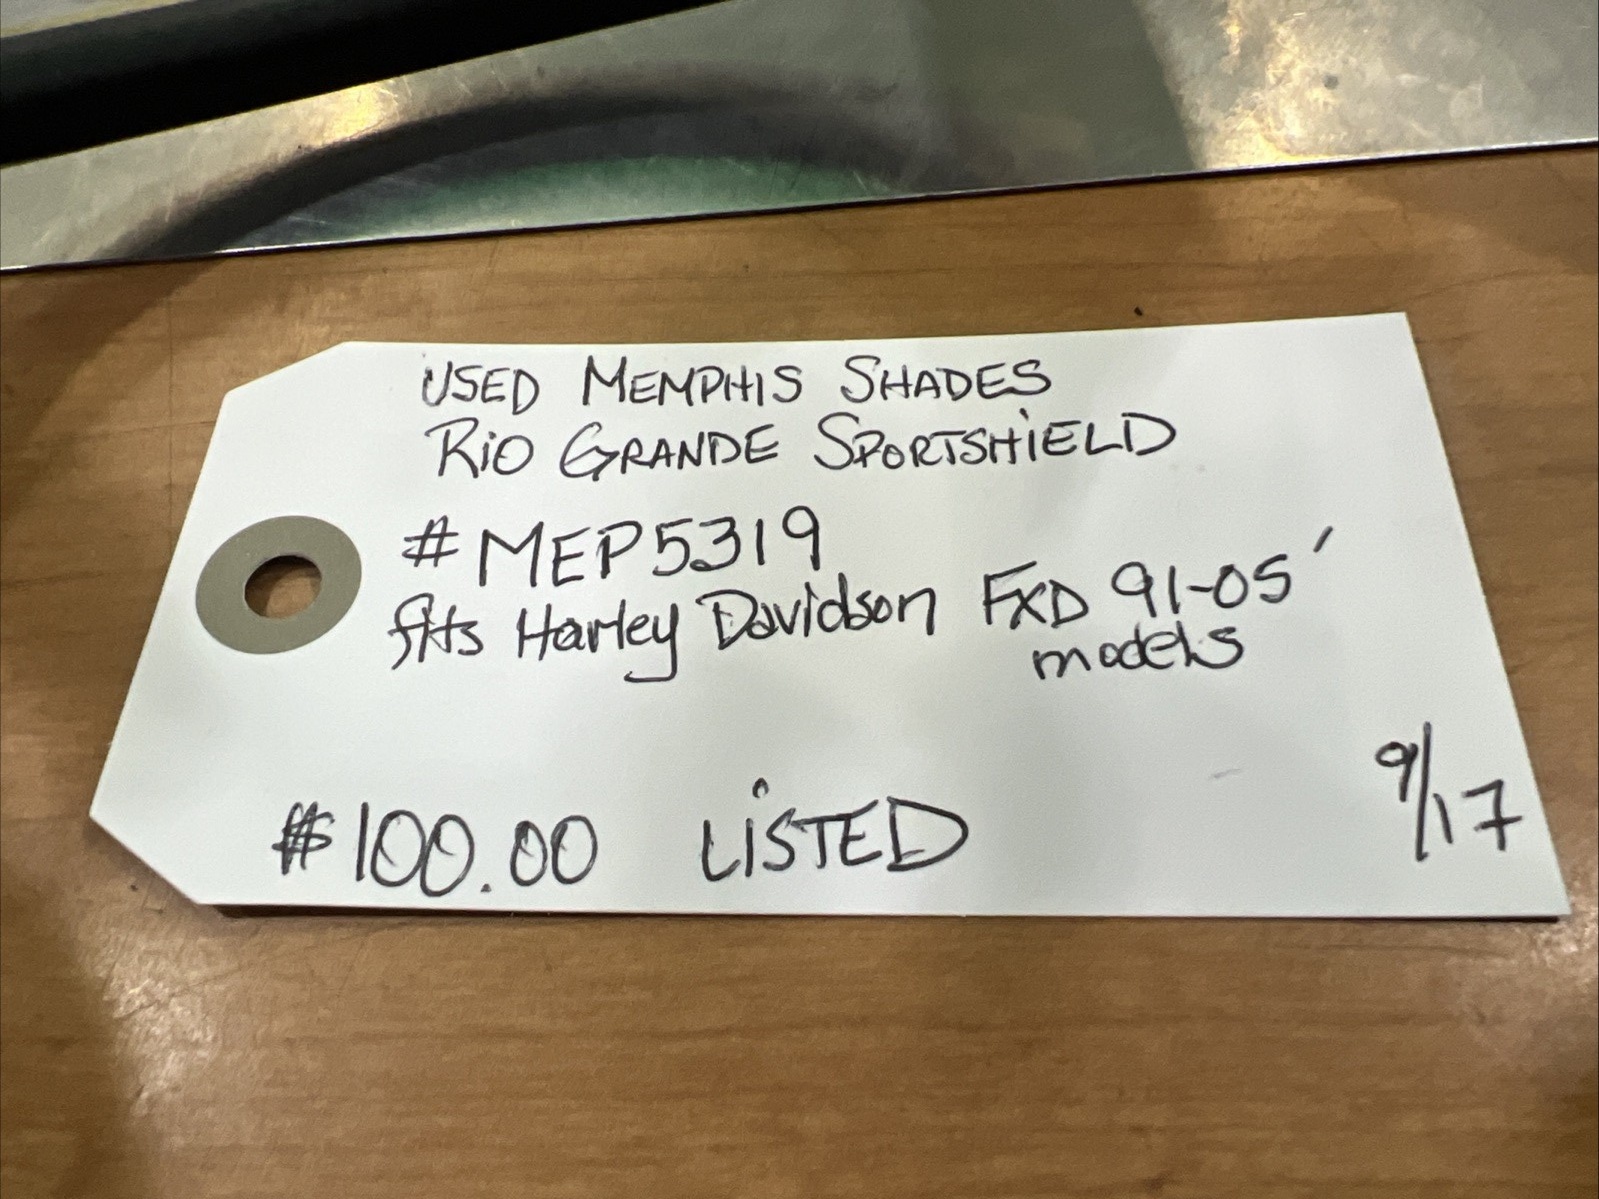 USED MEMPHIS SHADES
RiO GRANDE SPORTSHiELD
#MEP5319
fits Harley Davidson FXD 91-05'
models
$100.00 LiSTED
9/17